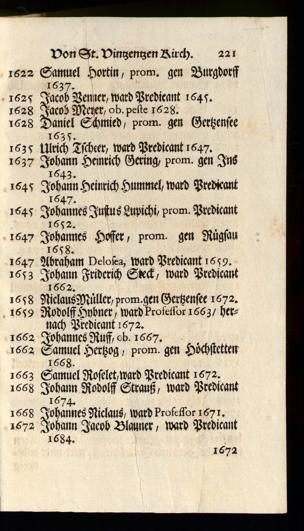 Von St. Vintzentzen Kirch. 221
1622 Samuel Hortin, prom. gen Burgdorff
1637.
1625 Jacob Venner, ward Predicant 1645.
1628 Jacob Meyer, ob. peste 1628.
1628 Daniel Schmied, prom. gen Gertzensee
1635.
1635 Ulrich Tscheer, ward Predicant 1647.
1637 Johann Heinrich Gering, prom. gen Ins
1643.
1645 Johann Heinrich Hummel, ward Predicant
1647.
1645 Johannes Justus Lupichi, prom. Predicant
1652.
1647 Johannes Hoffer, prom. gen Rügsau
1658.
1647 Abraham Delosea, ward Predicant 1659.
1653 Johann Friderich Steck, ward Predicant
1662.
1658 Niclaus Müller, prom. gen Gertzensee 1672.
1659 Rodolff Hybner, ward Professor 1663/ her-
nach Predicant 1672.
1662 Johannes Ruff, ob. 1667.
1662 Samuel Hertzog, prom. gen Höchstetten
1668.
1663 Samuel Roselet, ward Predicant 1672.
1668 Johann Rodolff Strauß, ward Predicant
1674.
1668 Johannes Niclaus, ward Professor 1671.
1672 Johann Jacob Blauner, ward Predicant
1684.
1672